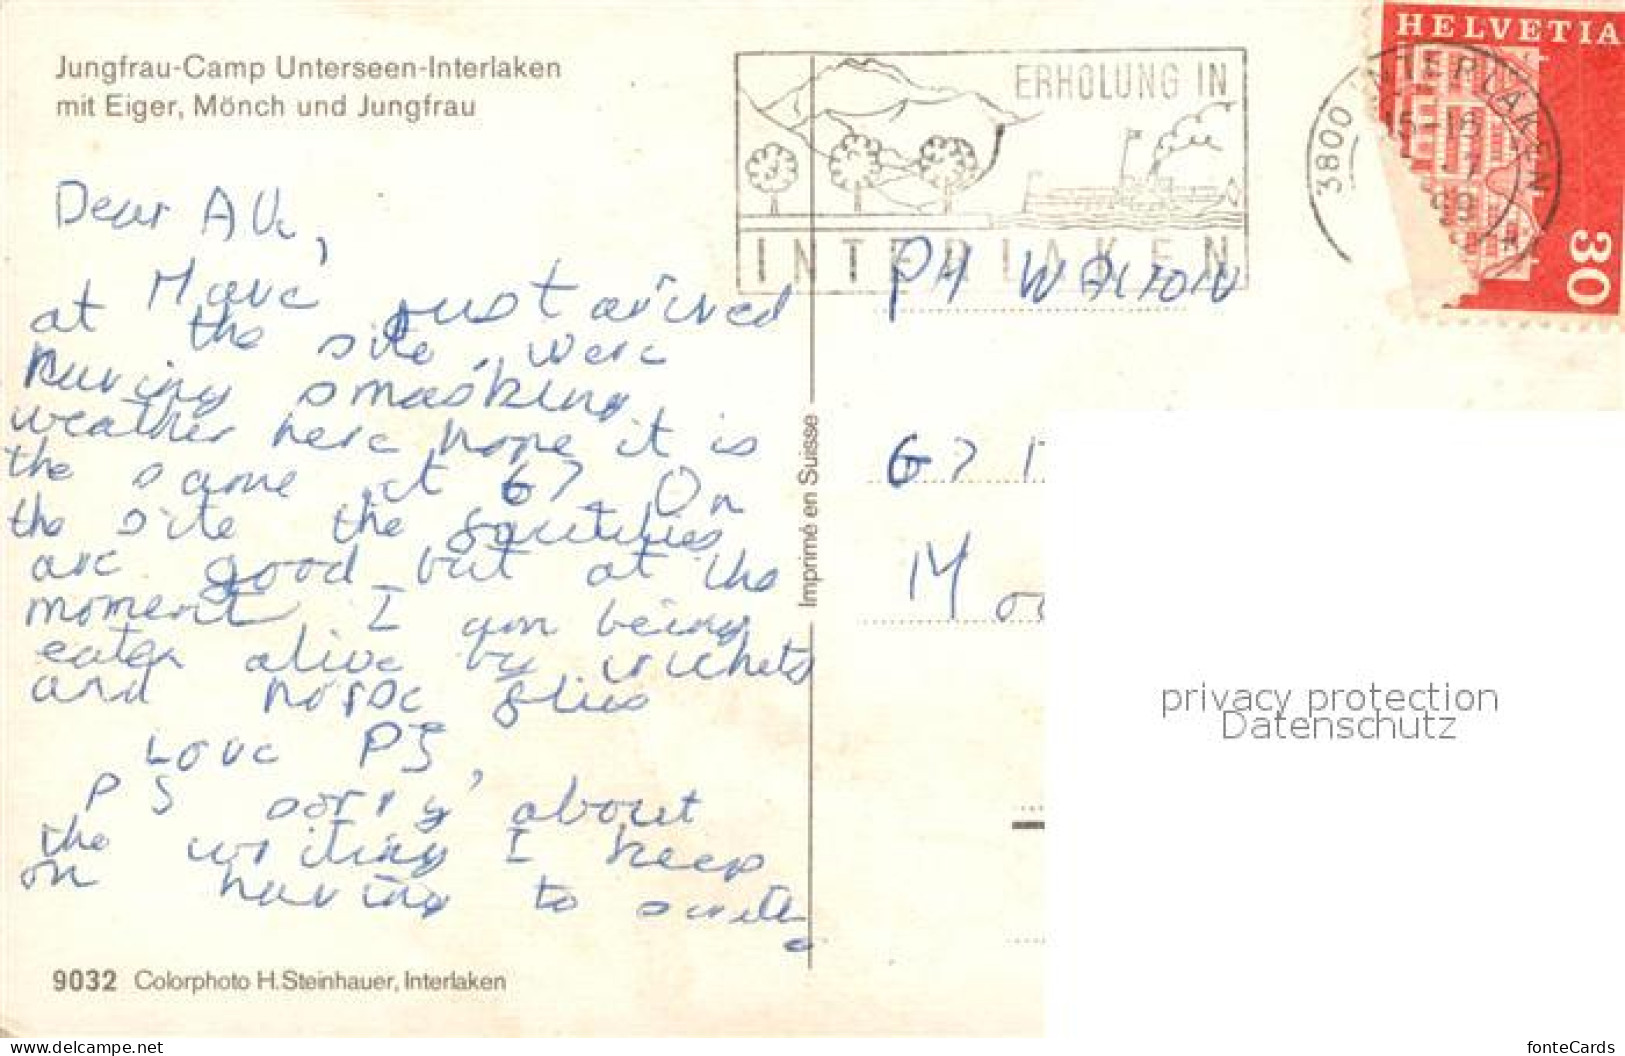 Jungfrau-Camp Unterseen-Interlaken
mit Eiger, Mönch und Jungfrau
ERHOLUNG IN
INTERLAKEN
HELVETIA
30
3800 INTERLAKEN
15-16
Dear All,
Have just arived
at the site, were
having smashing
weather here hope it is
the same at 67 On
the site the facitilies
are good but at the
moment I am being
eaten alive by crickets
and horse flies
Love PJ,
PS sorry about
the writing I keep
on having to
PH WALTON
67
Moo
Imprimé en Suisse
9032 Colorphoto H.Steinhauer, Interlaken
privacy protection
Datenschutz
www.delcampe.net
fonteCards